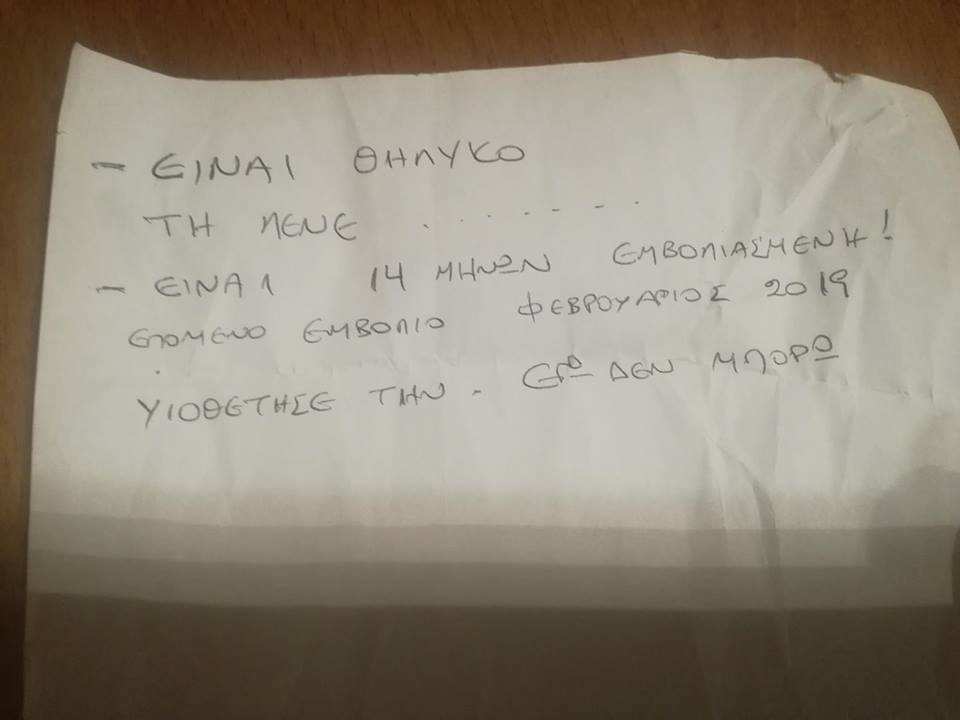 - ΕΙΝΑΙ ΘΗΛΥΚΟ
ΤΗ ΛΕΝΕ . . . . . . .
- ΕΙΝΑΙ 14 ΜΗΝΩΝ ΕΜΒΟΛΙΑΣΜΕΝΗ!
ΕΠΟΜΕΝΟ ΕΜΒΟΛΙΟ ΦΕΒΡΟΥΑΡΙΟΣ 2019
ΥΙΟΘΕΤΗΣΕ ΤΗΝ. ΕΓΩ ΔΕΝ ΜΠΟΡΩ